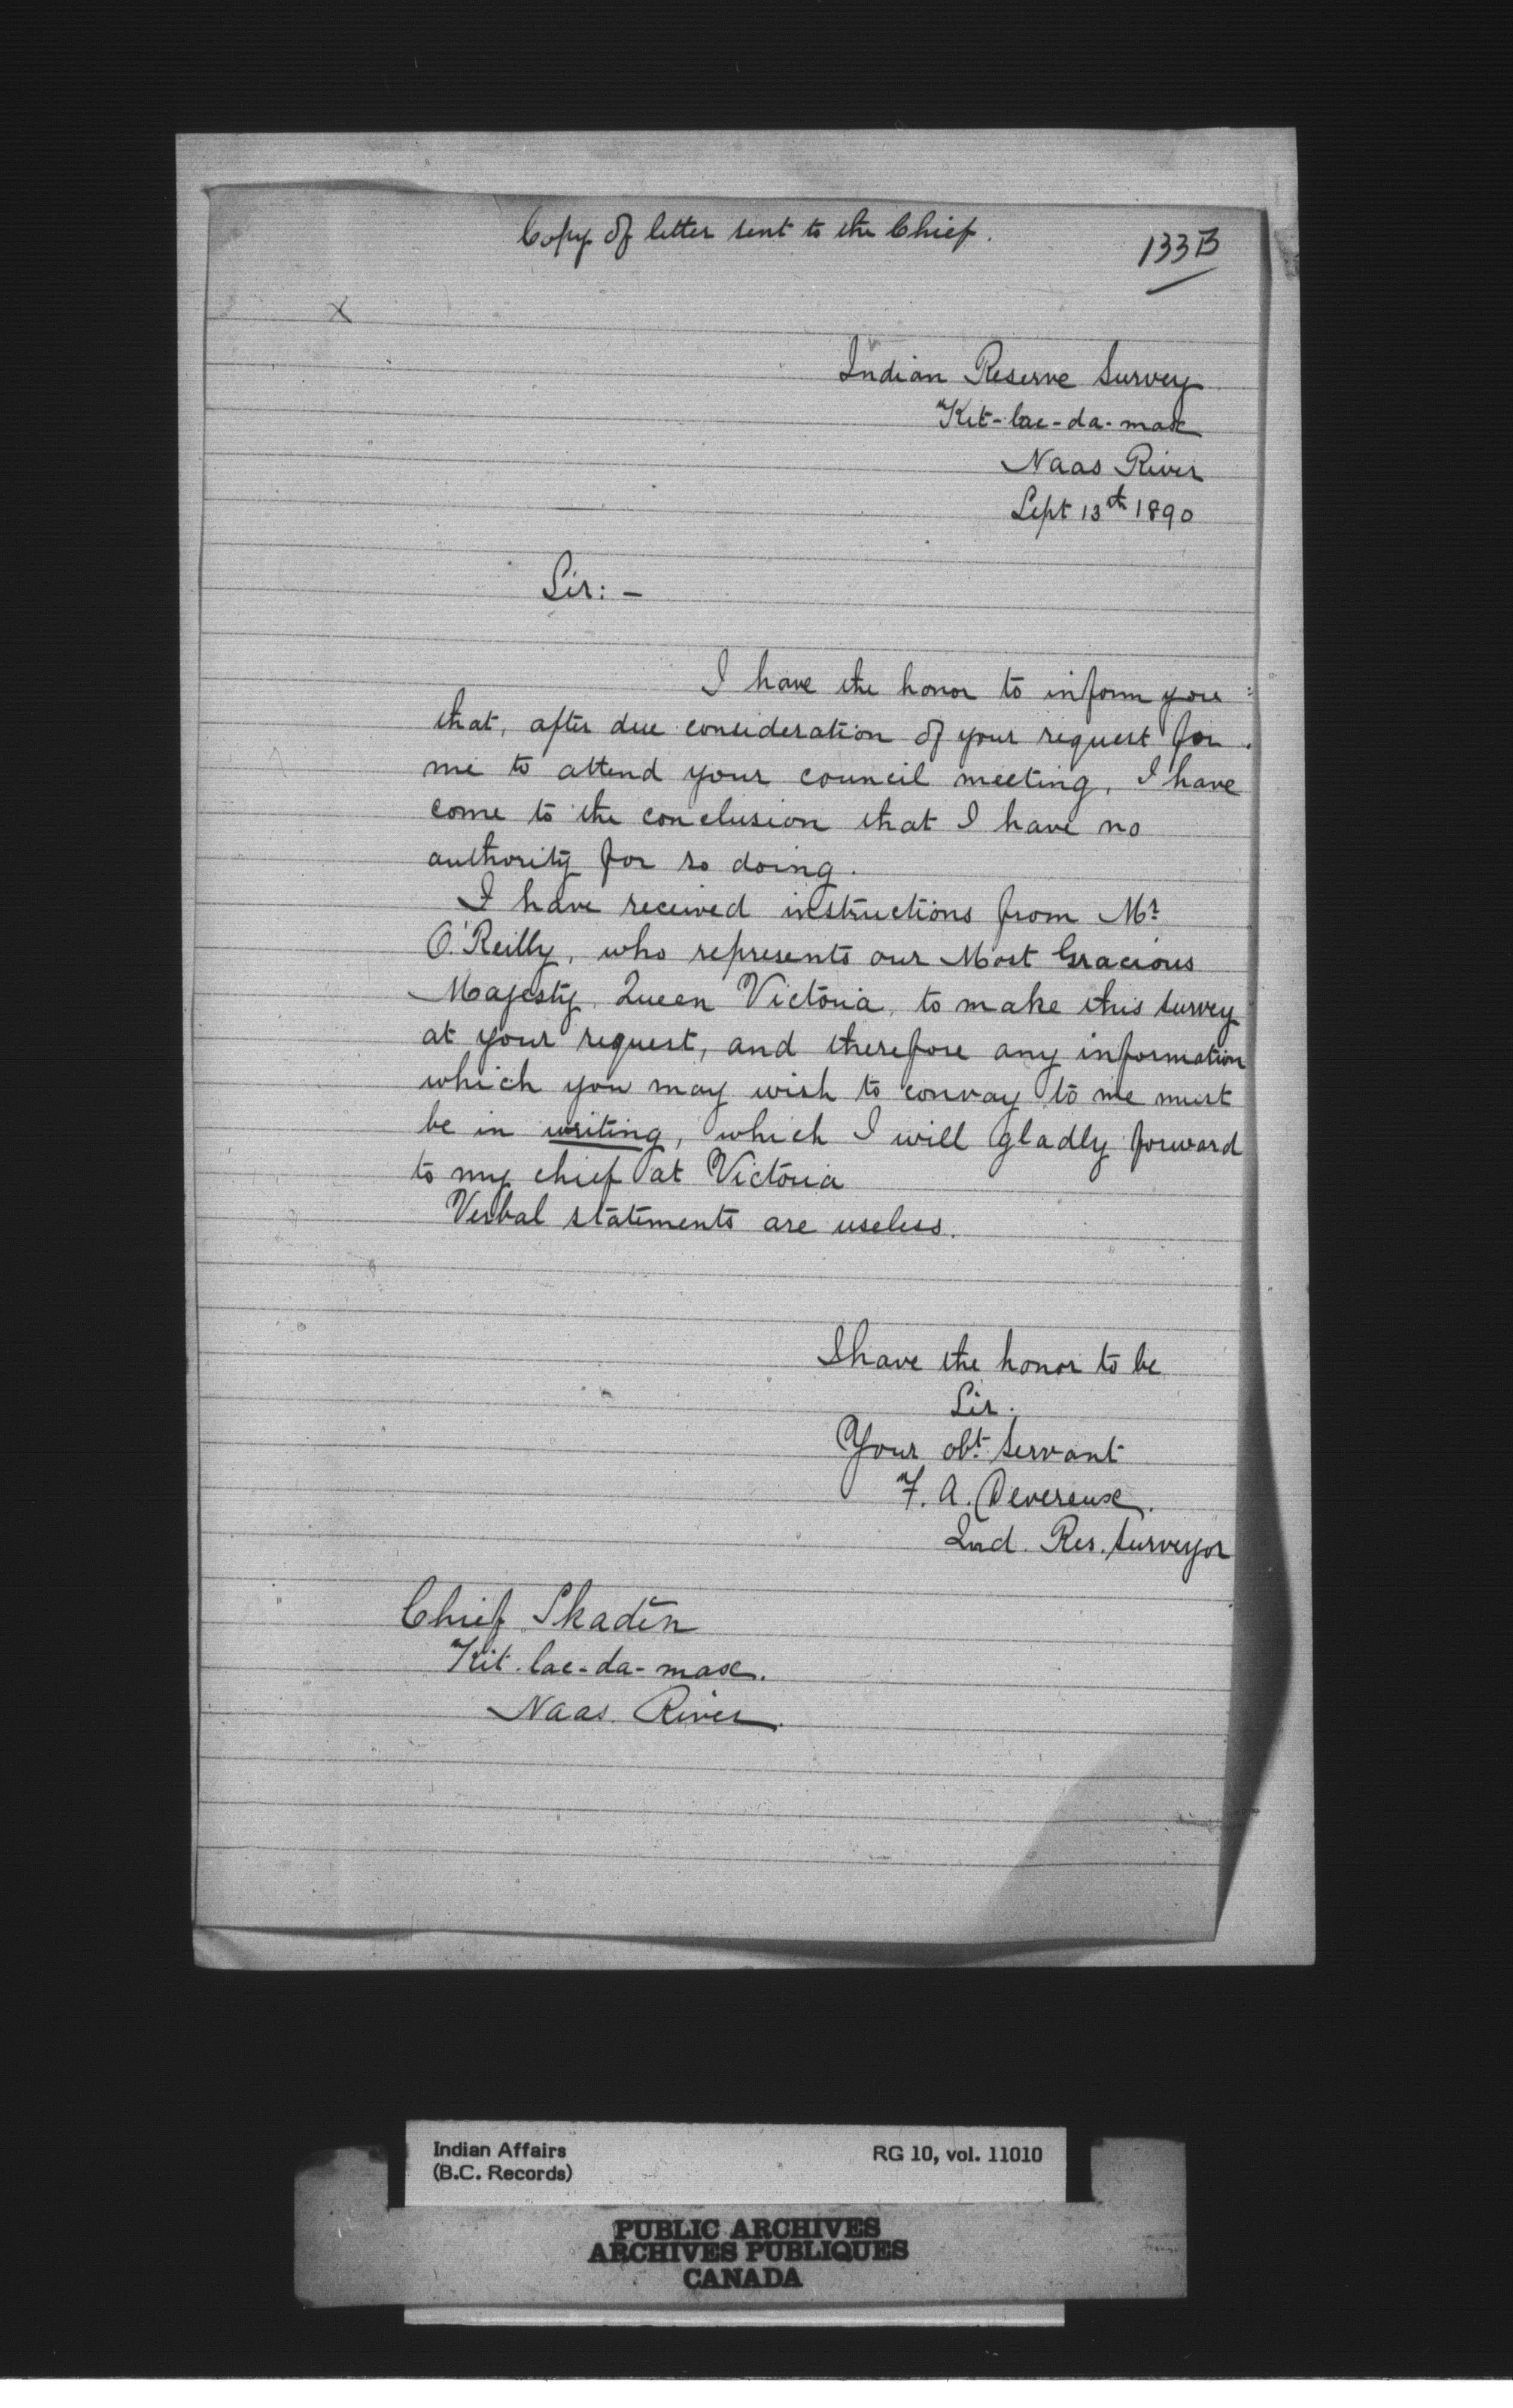 Copy of letter sent to the Chief.
133B
X
Indian Reserve Survey
Kit-lac-da-max
Naas River
Sept 13th 1890
Sir: -
I have the honor to inform you
that, after due consideration of your request for
me to attend your council meeting, I have
come to the conclusion that I have no
authority for so doing.
I have received instructions from Mr.
O'Reilly, who represents our Most Gracious
Majesty, Queen Victoria, to make this survey
at your request, and therefore any information
which you may wish to convay to me must
be in writing, which I will gladly forward
to my chief at Victoria
Verbal statements are useless.
I have the honor to be
Sir.
Your obt. servant
F. A. Devereux.
Ind. Res. Surveyor
Chief Skadēn
Kit-lac-da-max.
Naas River.
Indian Affairs
(B.C. Records)
RG 10, vol. 11010
PUBLIC ARCHIVES
ARCHIVES PUBLIQUES
CANADA